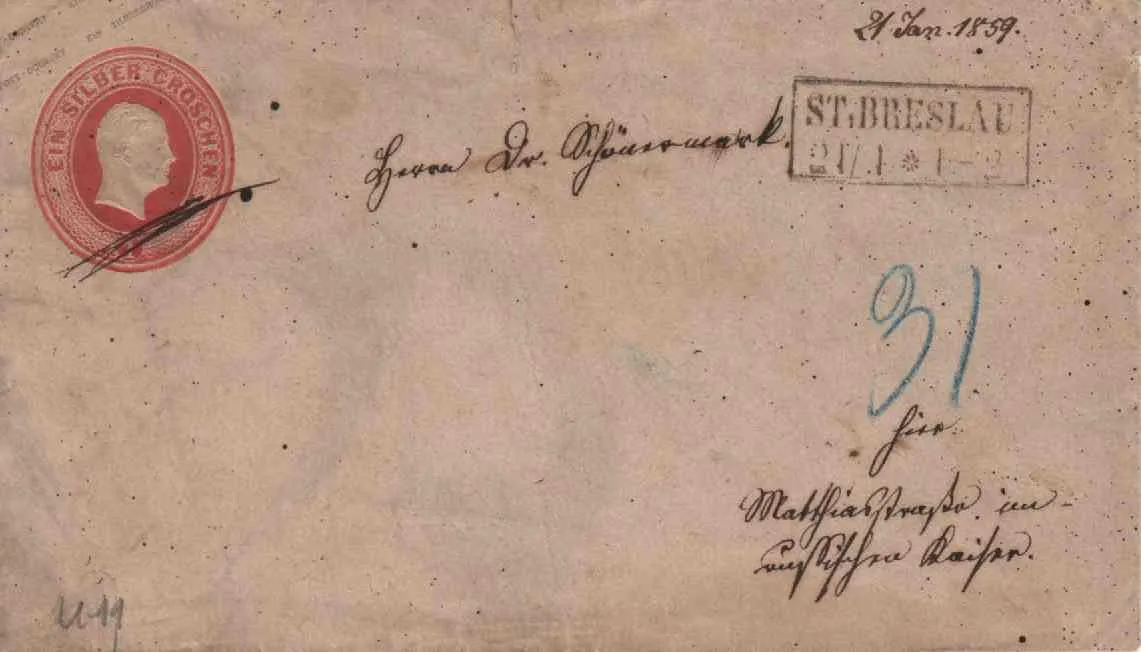 POST-COUVERT EIN SILBERGROSCHEN
21 Jan. 1859.
EIN SILBER GROSCHEN
ST. BRESLAU
21/1 * 1–2
Herrn Dr. Schönermark.
31
hier.
Matthiasstraße im
russischen Kaiser.